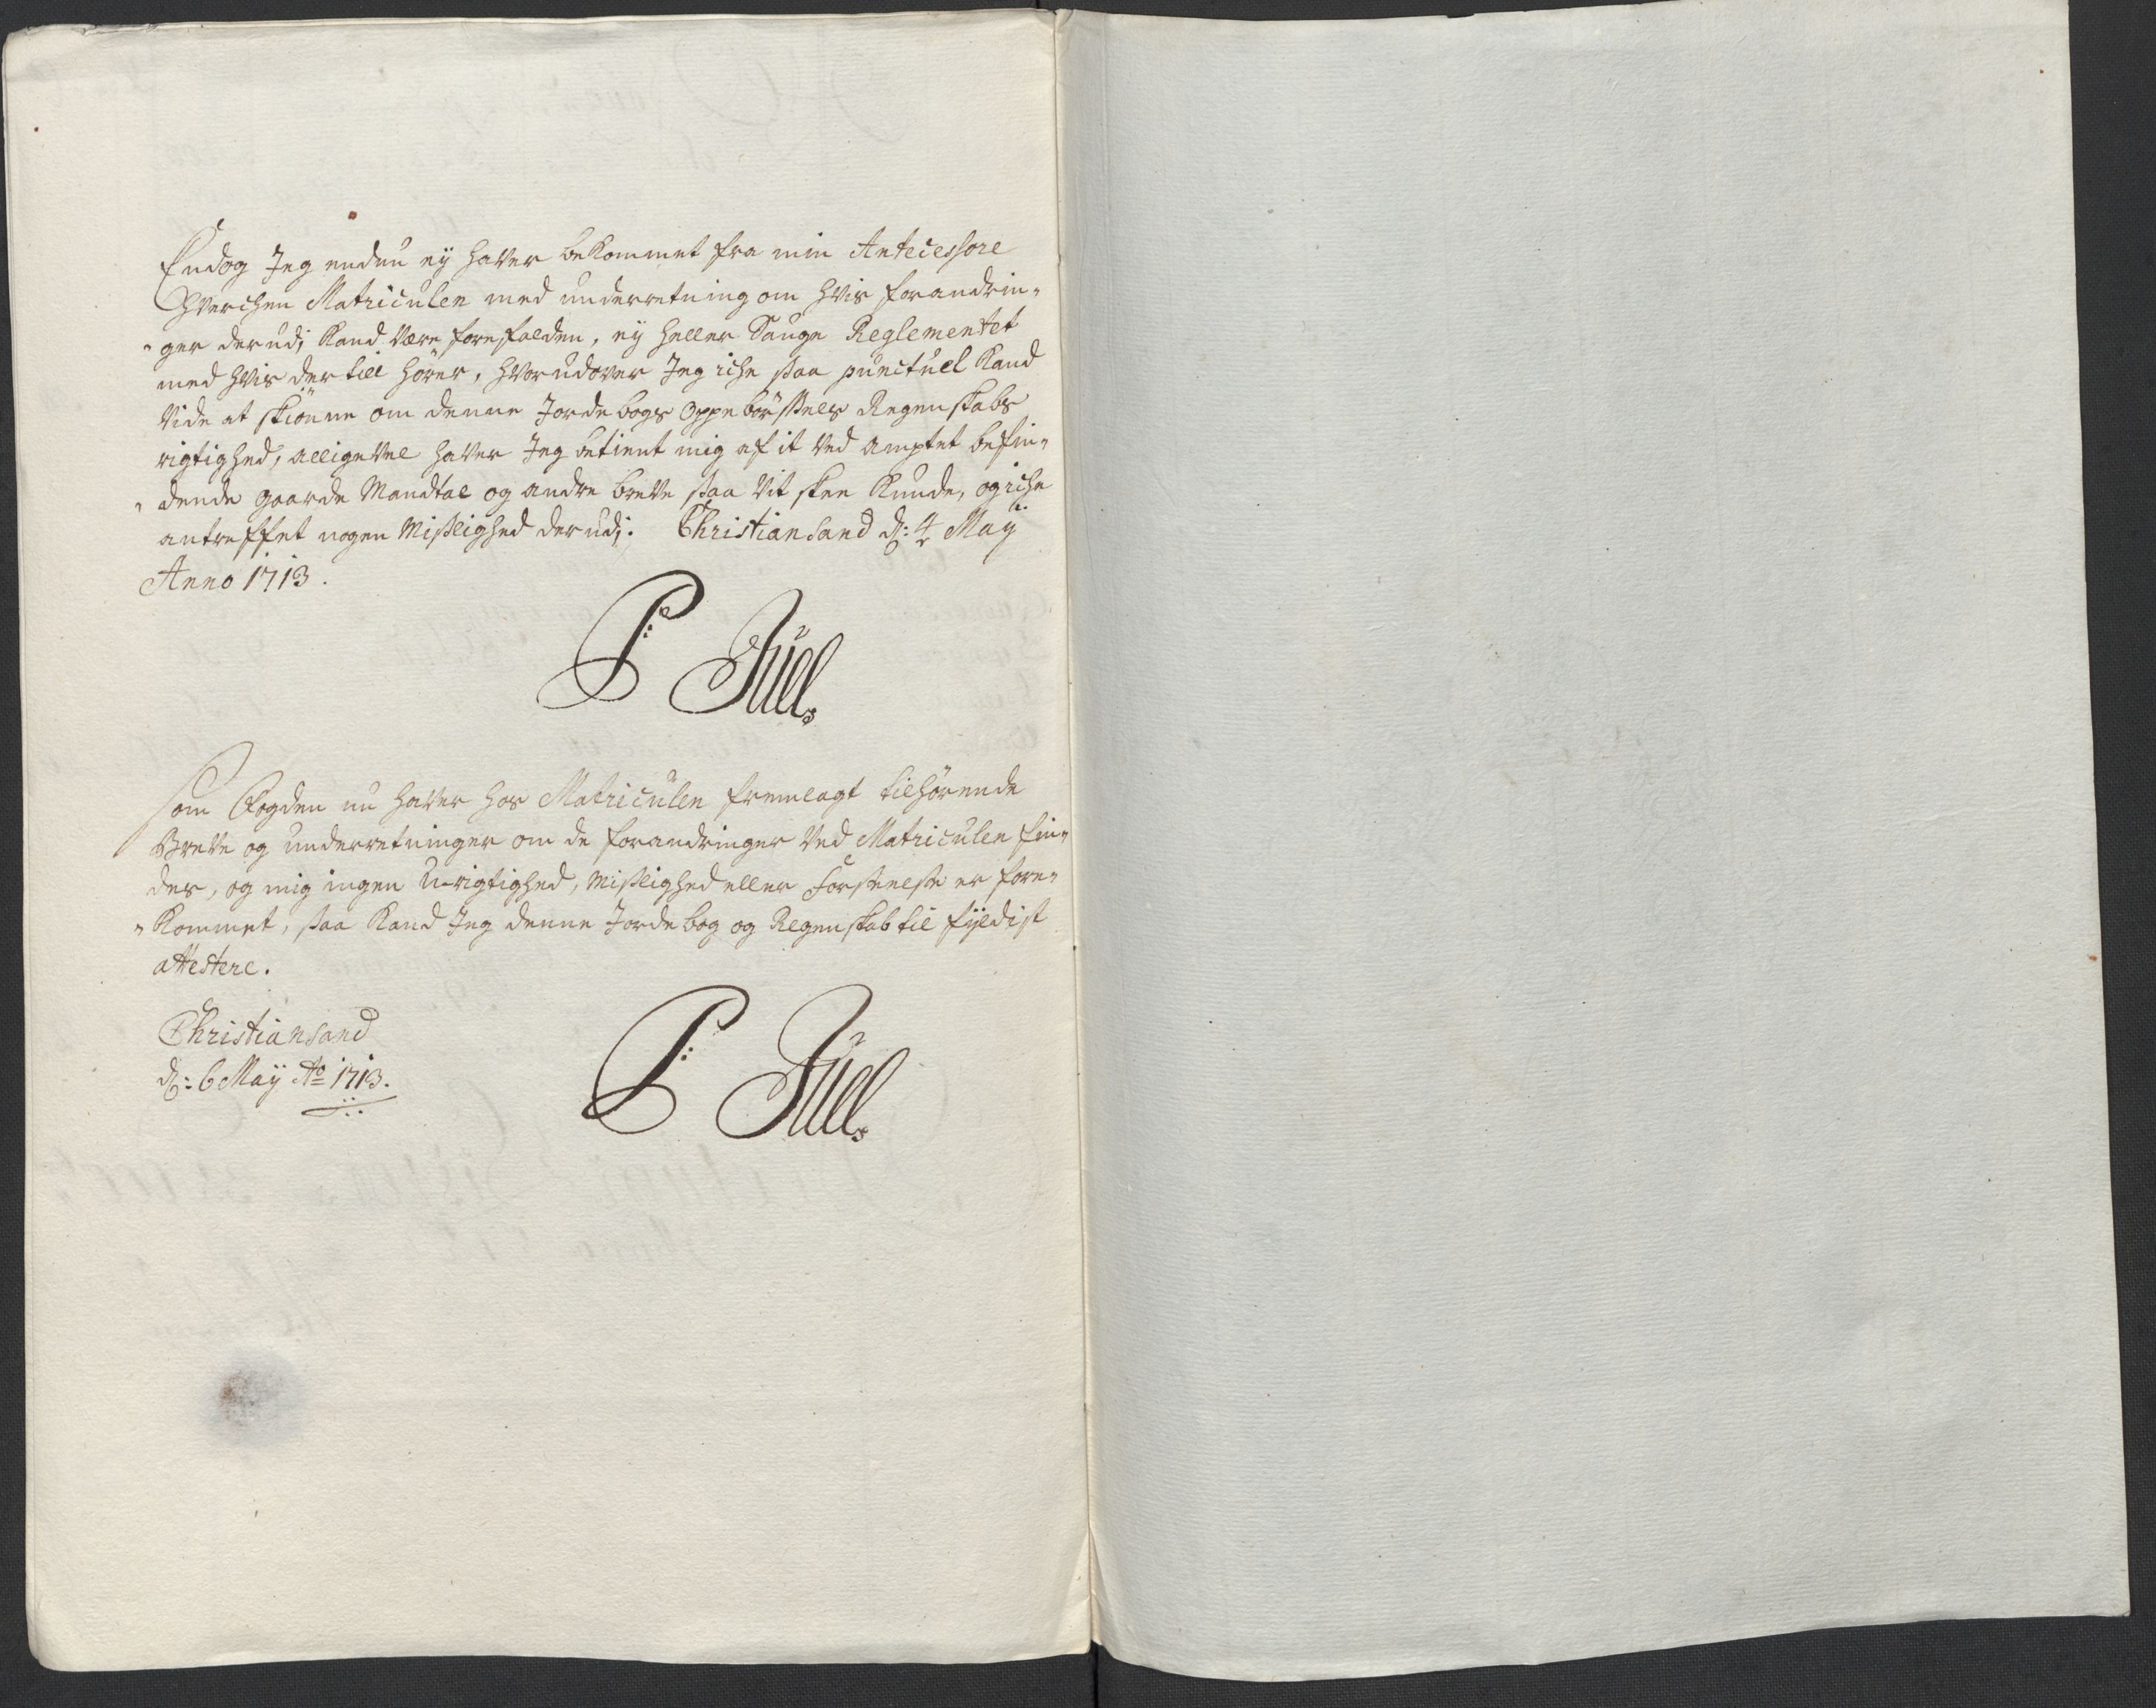 Endog Jeg endnu ey haver bekommet fra min Antecessore
Hverchen Matriculen med underretning om hvis forandrin-
-ger derudj kand være forefalden, ey heller Sauge Reglementet
med hvis der till hörer, hvorudover Jeg iche saa punctuel kand
vide at skiönne om denne Jordebogs Oppebörssels Regenskabs
rigtighed, alligevel haver Jeg betient mig af it ved amptet befin-
-dende gaarde Mandtal og andre breve saa vit skee kunde, og iche
antreffet nogen Misslighed derudj. Christiansand d: 4 May
Anno 1713.
P: Juel.
Som Fogden nu haver hos Matriculen fremlagt tilhörende
Breve og underretninger om de forandringer ved Matriculen fin-
des, og mig ingen U-rigtighed, Misslighed eller Forseelse er fore-
-kommet, saa kand Jeg denne Jordebog og Regenskab til fyldist
attestere.
Christiansand
d: 6 May Ao 1713.
P: Juel.